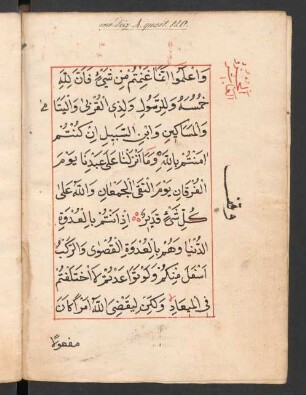 الجزو
العاشر
واعلموا انما غنمتم من شيء فان لله
خمسه وللرسول ولذي القربى واليتامى
والمساكين وابن السبيل ان كنتم
امنتم بالله وما انزلنا على عبدنا يوم
الفرقان يوم التقى الجمعان والله على
كل شيء قدير اذ انتم بالعدوة
الدنيا وهم بالعدوة القصوى والركب
اسفل منكم ولو تواعدتم لاختلفتم
في الميعاد ولكن ليقضي الله امرا كان
مفعولا